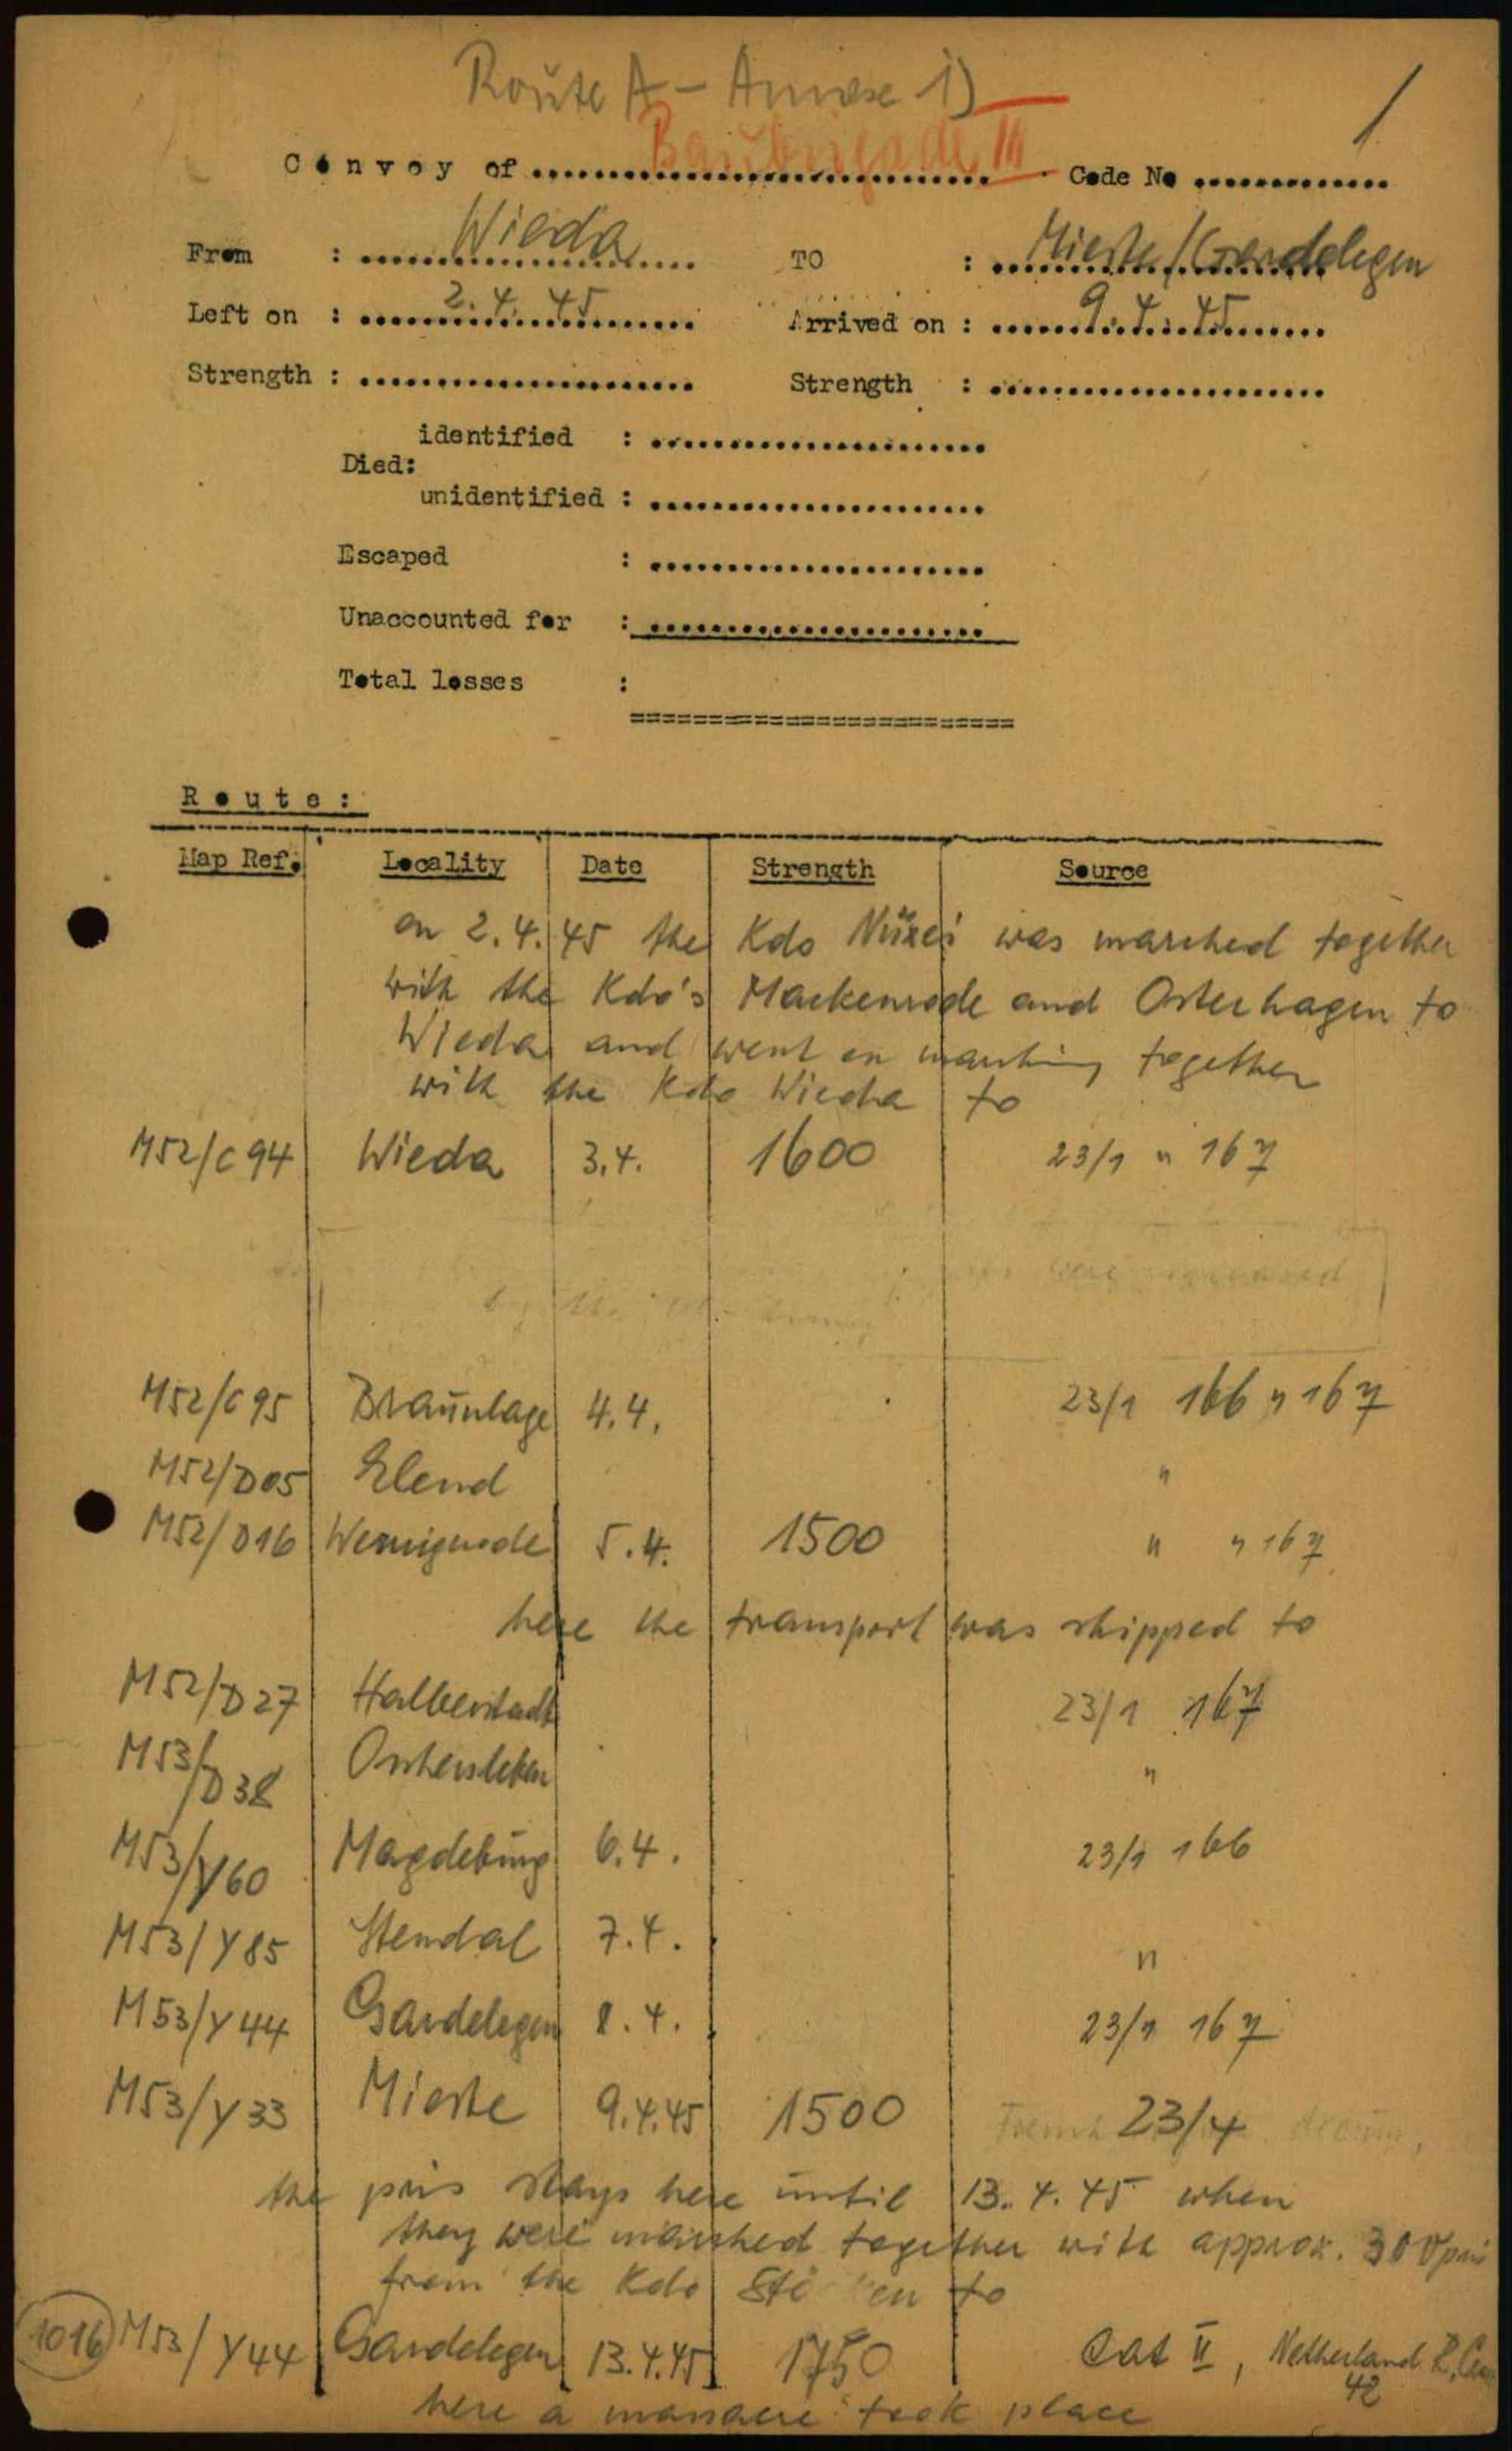 Route A - Annexe 1)
1
Baubrigade III
Convoy of .............................. Code No .............
From : Wieda TO : Mieste/Gardelegen
Left on : 2.4.45 Arrived on : 9.4.45
Strength : ...................... Strength : ......................
identified : ......................
Died:
unidentified : ......................
Escaped : ......................
Unaccounted for : ......................
Total losses :
=========================
Route:
Map Ref. Locality Date Strength Source
on 2.4.45 the Kdo Nüxei was marched together
with the Kdo's Mackenrode and Osterhagen to
Wieda and went on marching together
with the Kdo Wieda to
M52/C94 Wieda 3.4. 1600 23/1 " 167
were
by the
M52/C95 Braunlage 4.4. 23/1 166 " 167
M52/D05 Elend "
M52/D16 Wernigerode 5.4. 1500 " " 167
here the transport was shipped to
M52/D27 Halberstadt 23/1 167
M53/D38 Oschersleben "
M53/Y60 Magdeburg 6.4. 23/1 166
M53/Y85 Stendal 7.4. "
M53/Y44 Gardelegen 8.4. 23/1 167
M53/Y33 Mieste 9.4.45 1500 23/4
the pris stays here until 13.4.45 when
they were marched together with approx. 300 pris
from the Kdo to
1016 M53/Y44 Gardelegen 13.4.45 1750 Cat II, Netherland R.
42
here a massacre took place